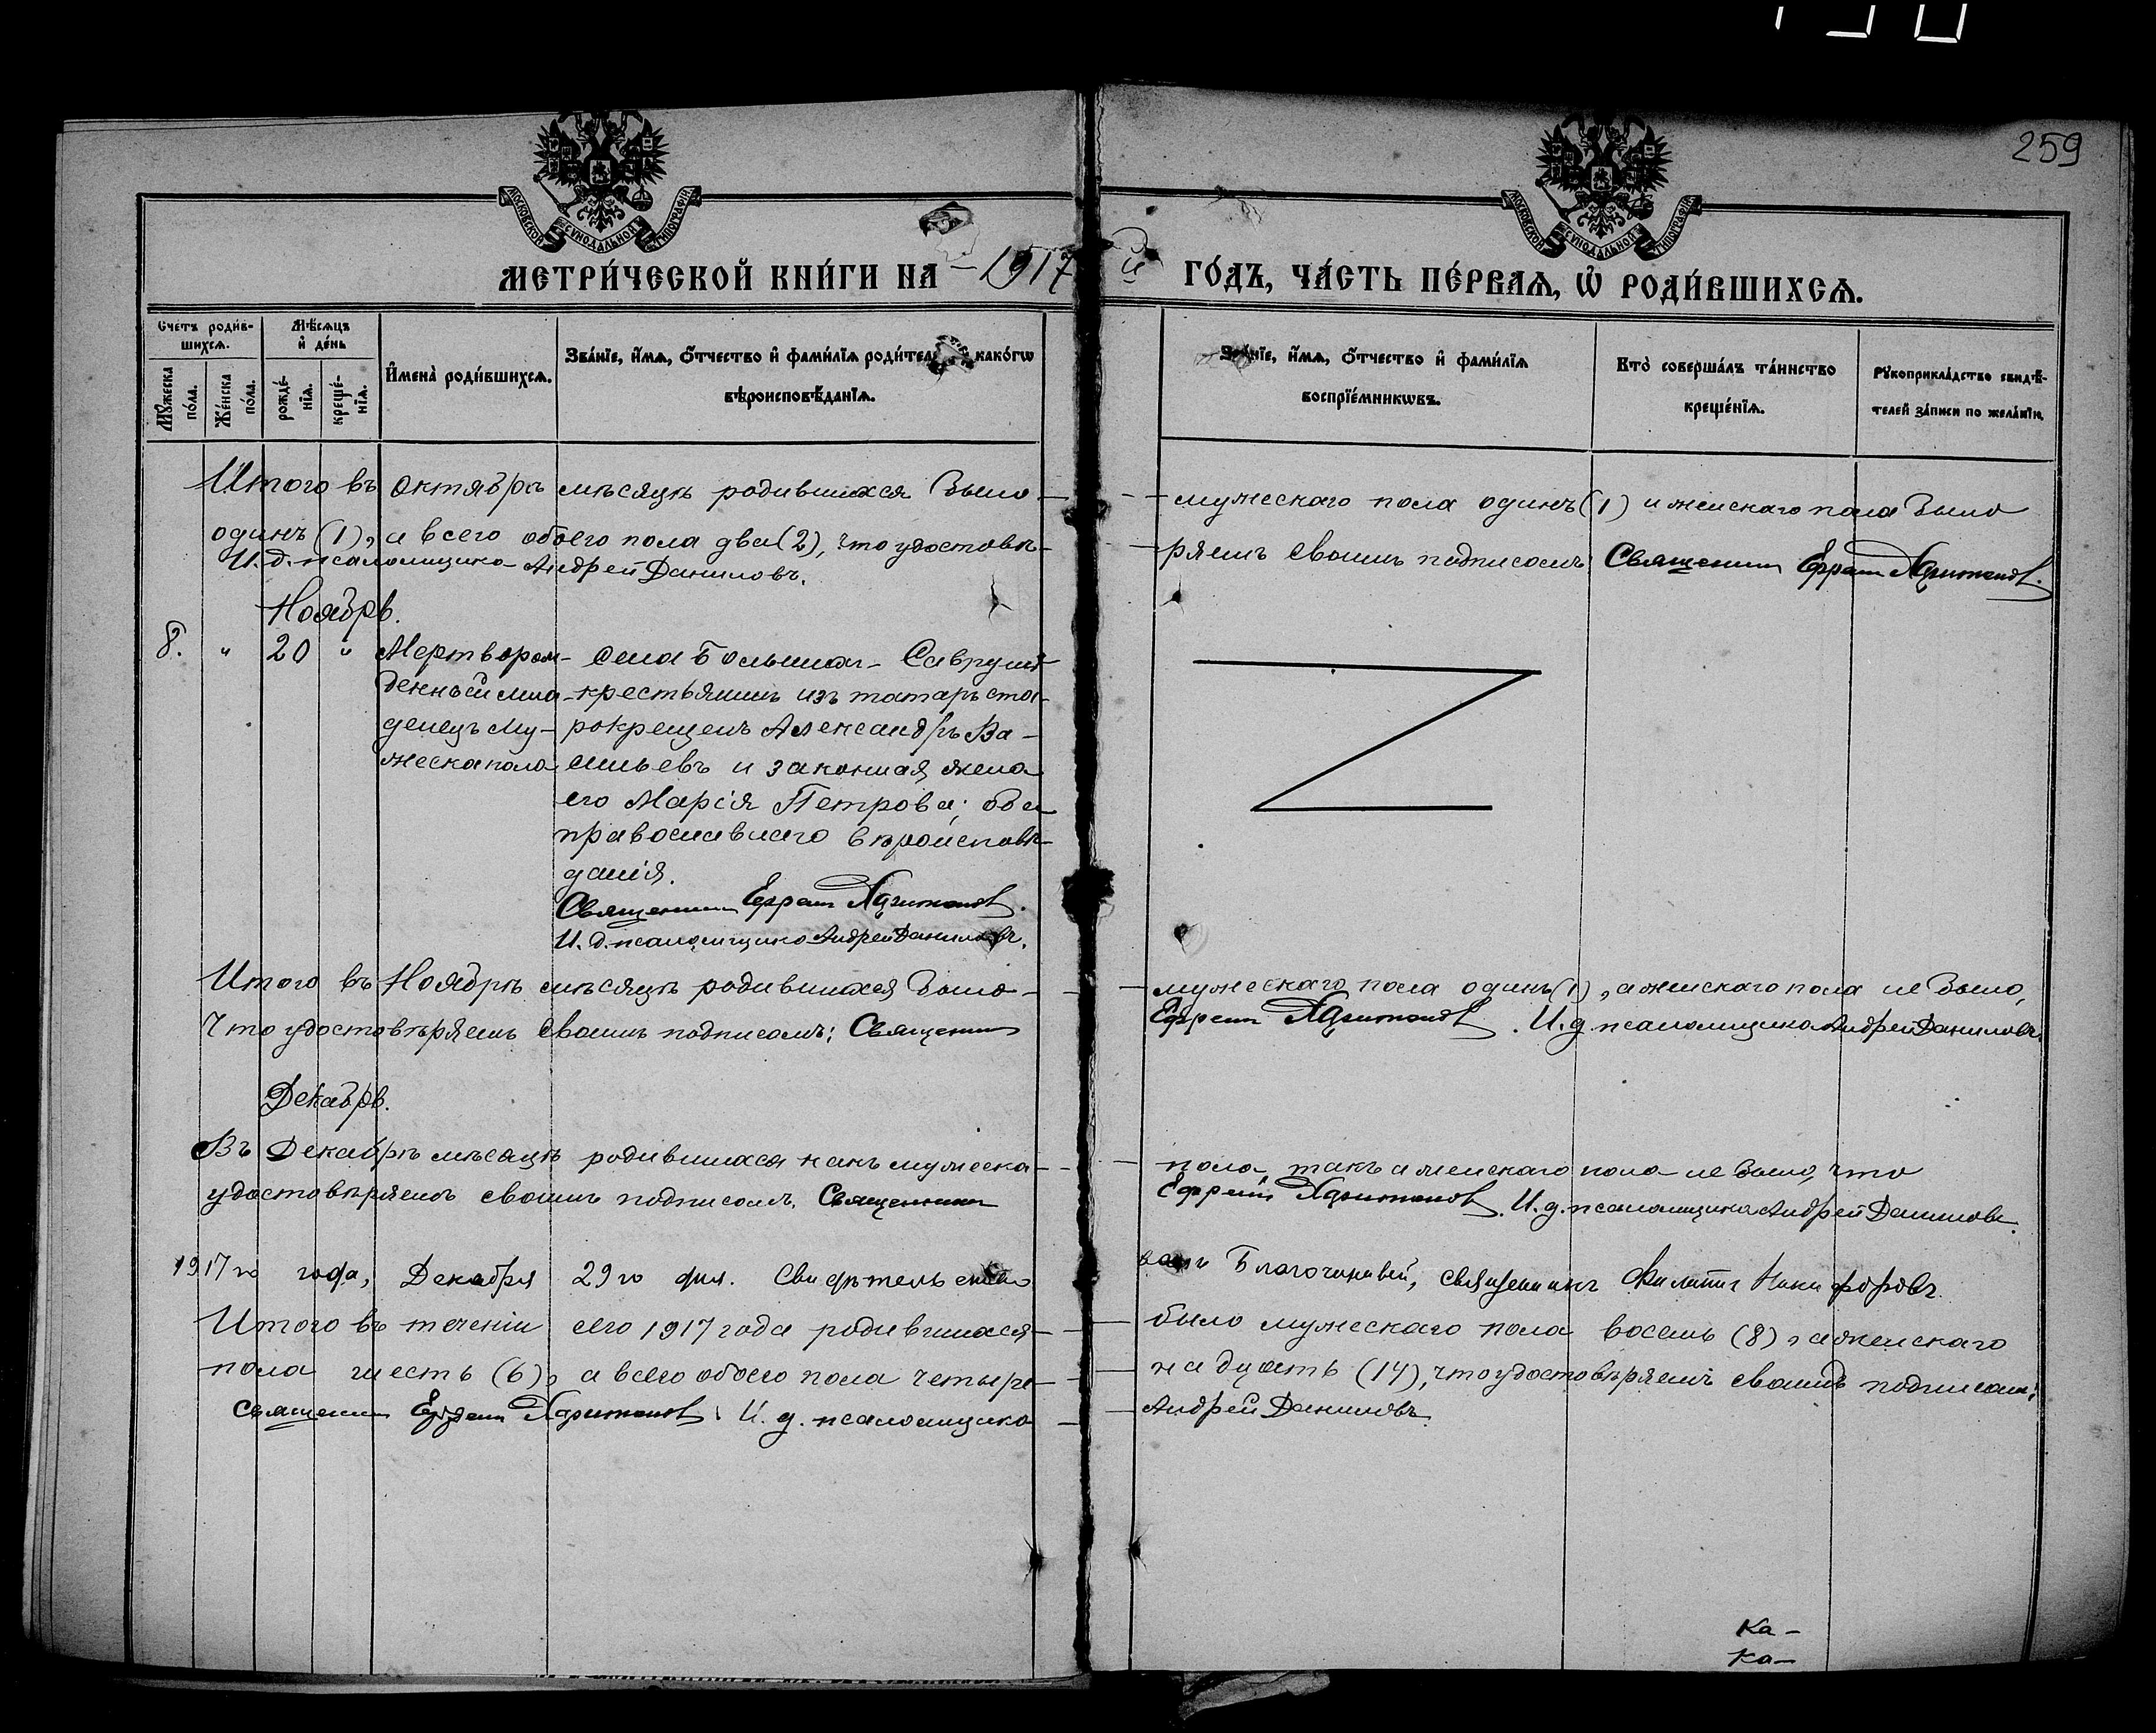 259
МОСКОВСКОЙ СѴНОДАЛЬНОЙ ТИПОГРАФІИ
МОСКОВСКОЙ СѴНОДАЛЬНОЙ ТИПОГРАФІИ
МЕТРИ́ЧЕСКОЙ КНИ́ГИ НА 1917 й ГО́ДЪ, ЧА́СТЬ ПЕ́РВАѦ, Ѽ РОДИ́ВШИХСѦ.
Счетъ роди́в-
шихсѧ.
Мꙋжеска по́ла.
Же́нска по́ла.
Мѣ́сѧцъ
и҆ де́нь
рожде́-
нїѧ.
креще́-
нїѧ.
И҆мена̀ роди́вшихсѧ.
Зва́нїе, и҆́мѧ, ѻ҆́тчество и҆ фами́лїѧ роди́тел како́гѡ
вѣроисповѣ́данїѧ.
Зва́нїе, и҆́мѧ, ѻ҆́тчество и҆ фами́лїѧ
воспрїе́мникѡвъ.
Кто̀ соверша́лъ та́инство
креще́нїѧ.
Рꙋкоприкла́дство свидѣ́-
телей за́писи по жела́нїю.
Итого въ октябрѣ мѣсяцѣ родившихся было — мужескаго пола одинъ (1) и женскаго пола было
одинъ (1), а всего обоего пола два (2), что удостовѣ-ряемъ своимъ подписомъ: Священникъ Ефремъ
И. д. псаломщика Андрей Даниловъ.
Ноябрь.
8. " 20 " Мертворож-
денный мла-
денецъ му-
жеска пола
села Большихъ-Саврушъ
крестьянинъ изъ татаръ ста-
рокрещенъ Александръ Ва-
сильевъ и законная жена
его Марія Петрова; оба
православнаго вѣроисповѣ-
данія.
Священникъ Ефремъ
И. д. псаломщика Андрей Даниловъ.
Итого въ Ноябрѣ мѣсяцѣ родившихся было — мужескаго пола одинъ (1), а женскаго пола не было,
что удостовѣряемъ своимъ подписомъ: Священникъ Ефремъ . И. д. псаломщика Андрей Даниловъ.
Декабрь.
Въ Декабрѣ мѣсяцѣ родившихся какъ мужеска — пола, такъ и женскаго пола не было, что
удостовѣряемъ своимъ подписомъ. Священникъ Ефремъ . И. д. псаломщика Андрей Даниловъ.
1917 го года, Декабря 29 го дня. Свидѣтельство вали Благочинный, священникъ Никифоровъ.
Итого въ теченіи сего 1917 года родившихся — было мужескаго пола восемь (8), а женскаго
пола шесть (6), а всего обоего пола четыре — надцать (14), что удостовѣряемъ своимъ подписомъ:
Священникъ Ефремъ . И. д. псаломщика — Андрей Даниловъ.
Ка-
Ка-